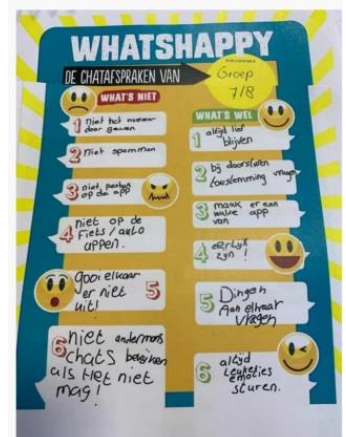 WHATSHAPPY
DE CHATAFSPRAKEN VAN
Groep
7/8
WHAT'S NIET
1 niet het nummer
door geven
2 niet spammen
3 niet pesten
op de app
4 niet op de
fiets / auto
appen.
5 gooi elkaar
er niet
uit!
6 niet andermans
chats bekijken
als het niet
mag!
WHAT'S WEL
1 altijd lief
blijven
2 bij doorsturen
toestemming vragen
3 maak er een
van
4 eerlijk
zijn !
5 Dingen
Aan elkaar
vragen
6 altijd
Leuke
sturen.